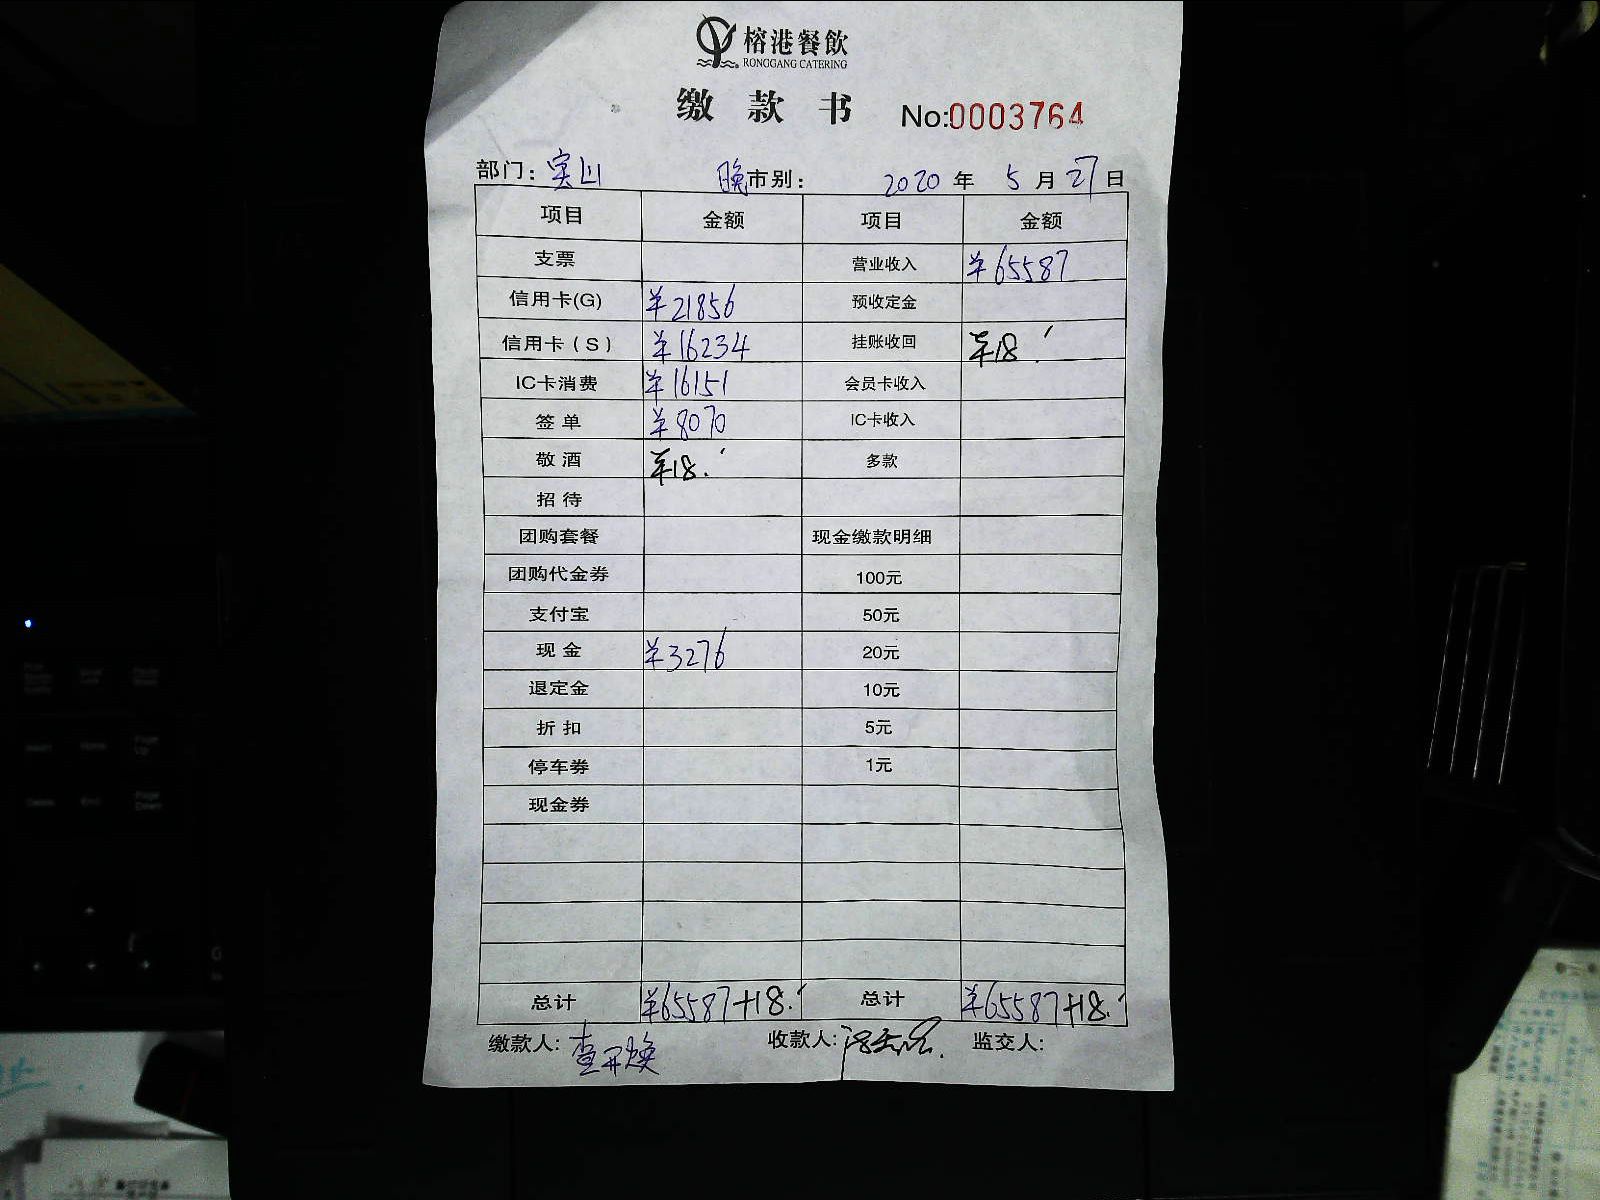 榕港餐飲
RONGGANG CATERING
缴款书 No:0003764
部门：实山 晚市别： 2020年 5月27日
项目 金额 项目 金额
支票 营业收入 ¥65587
信用卡(G) ¥21856 预收定金
信用卡（S） ¥16234 挂账收回 ¥18.
IC卡消费 ¥16151 会员卡收入
签单 ¥8070 IC卡收入
敬酒 ¥18. 多款
招待
团购套餐 现金缴款明细
团购代金券 100元
支付宝 50元
现金 ¥3276 20元
退定金 10元
折扣 5元
停车券 1元
现金券
总计 ¥65587+18. 总计 ¥65587+18.
缴款人: 查开焕 收款人: 监交人: